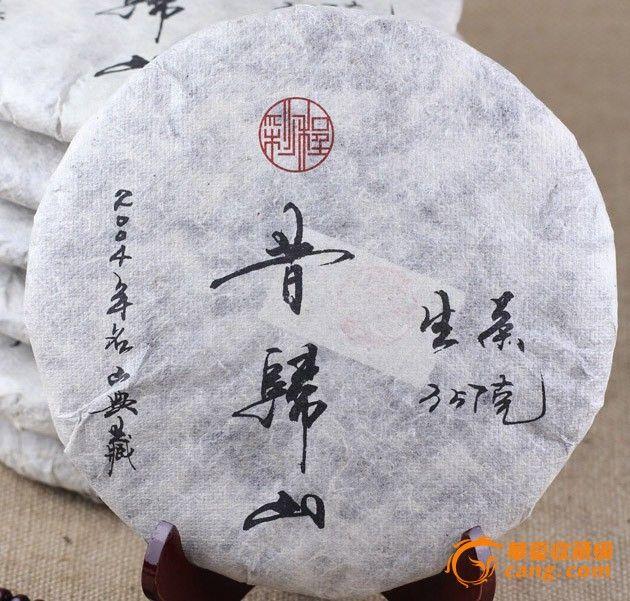 程利
昔歸山
2004年名山典藏
生茶
357克
華夏收藏網
cang.com